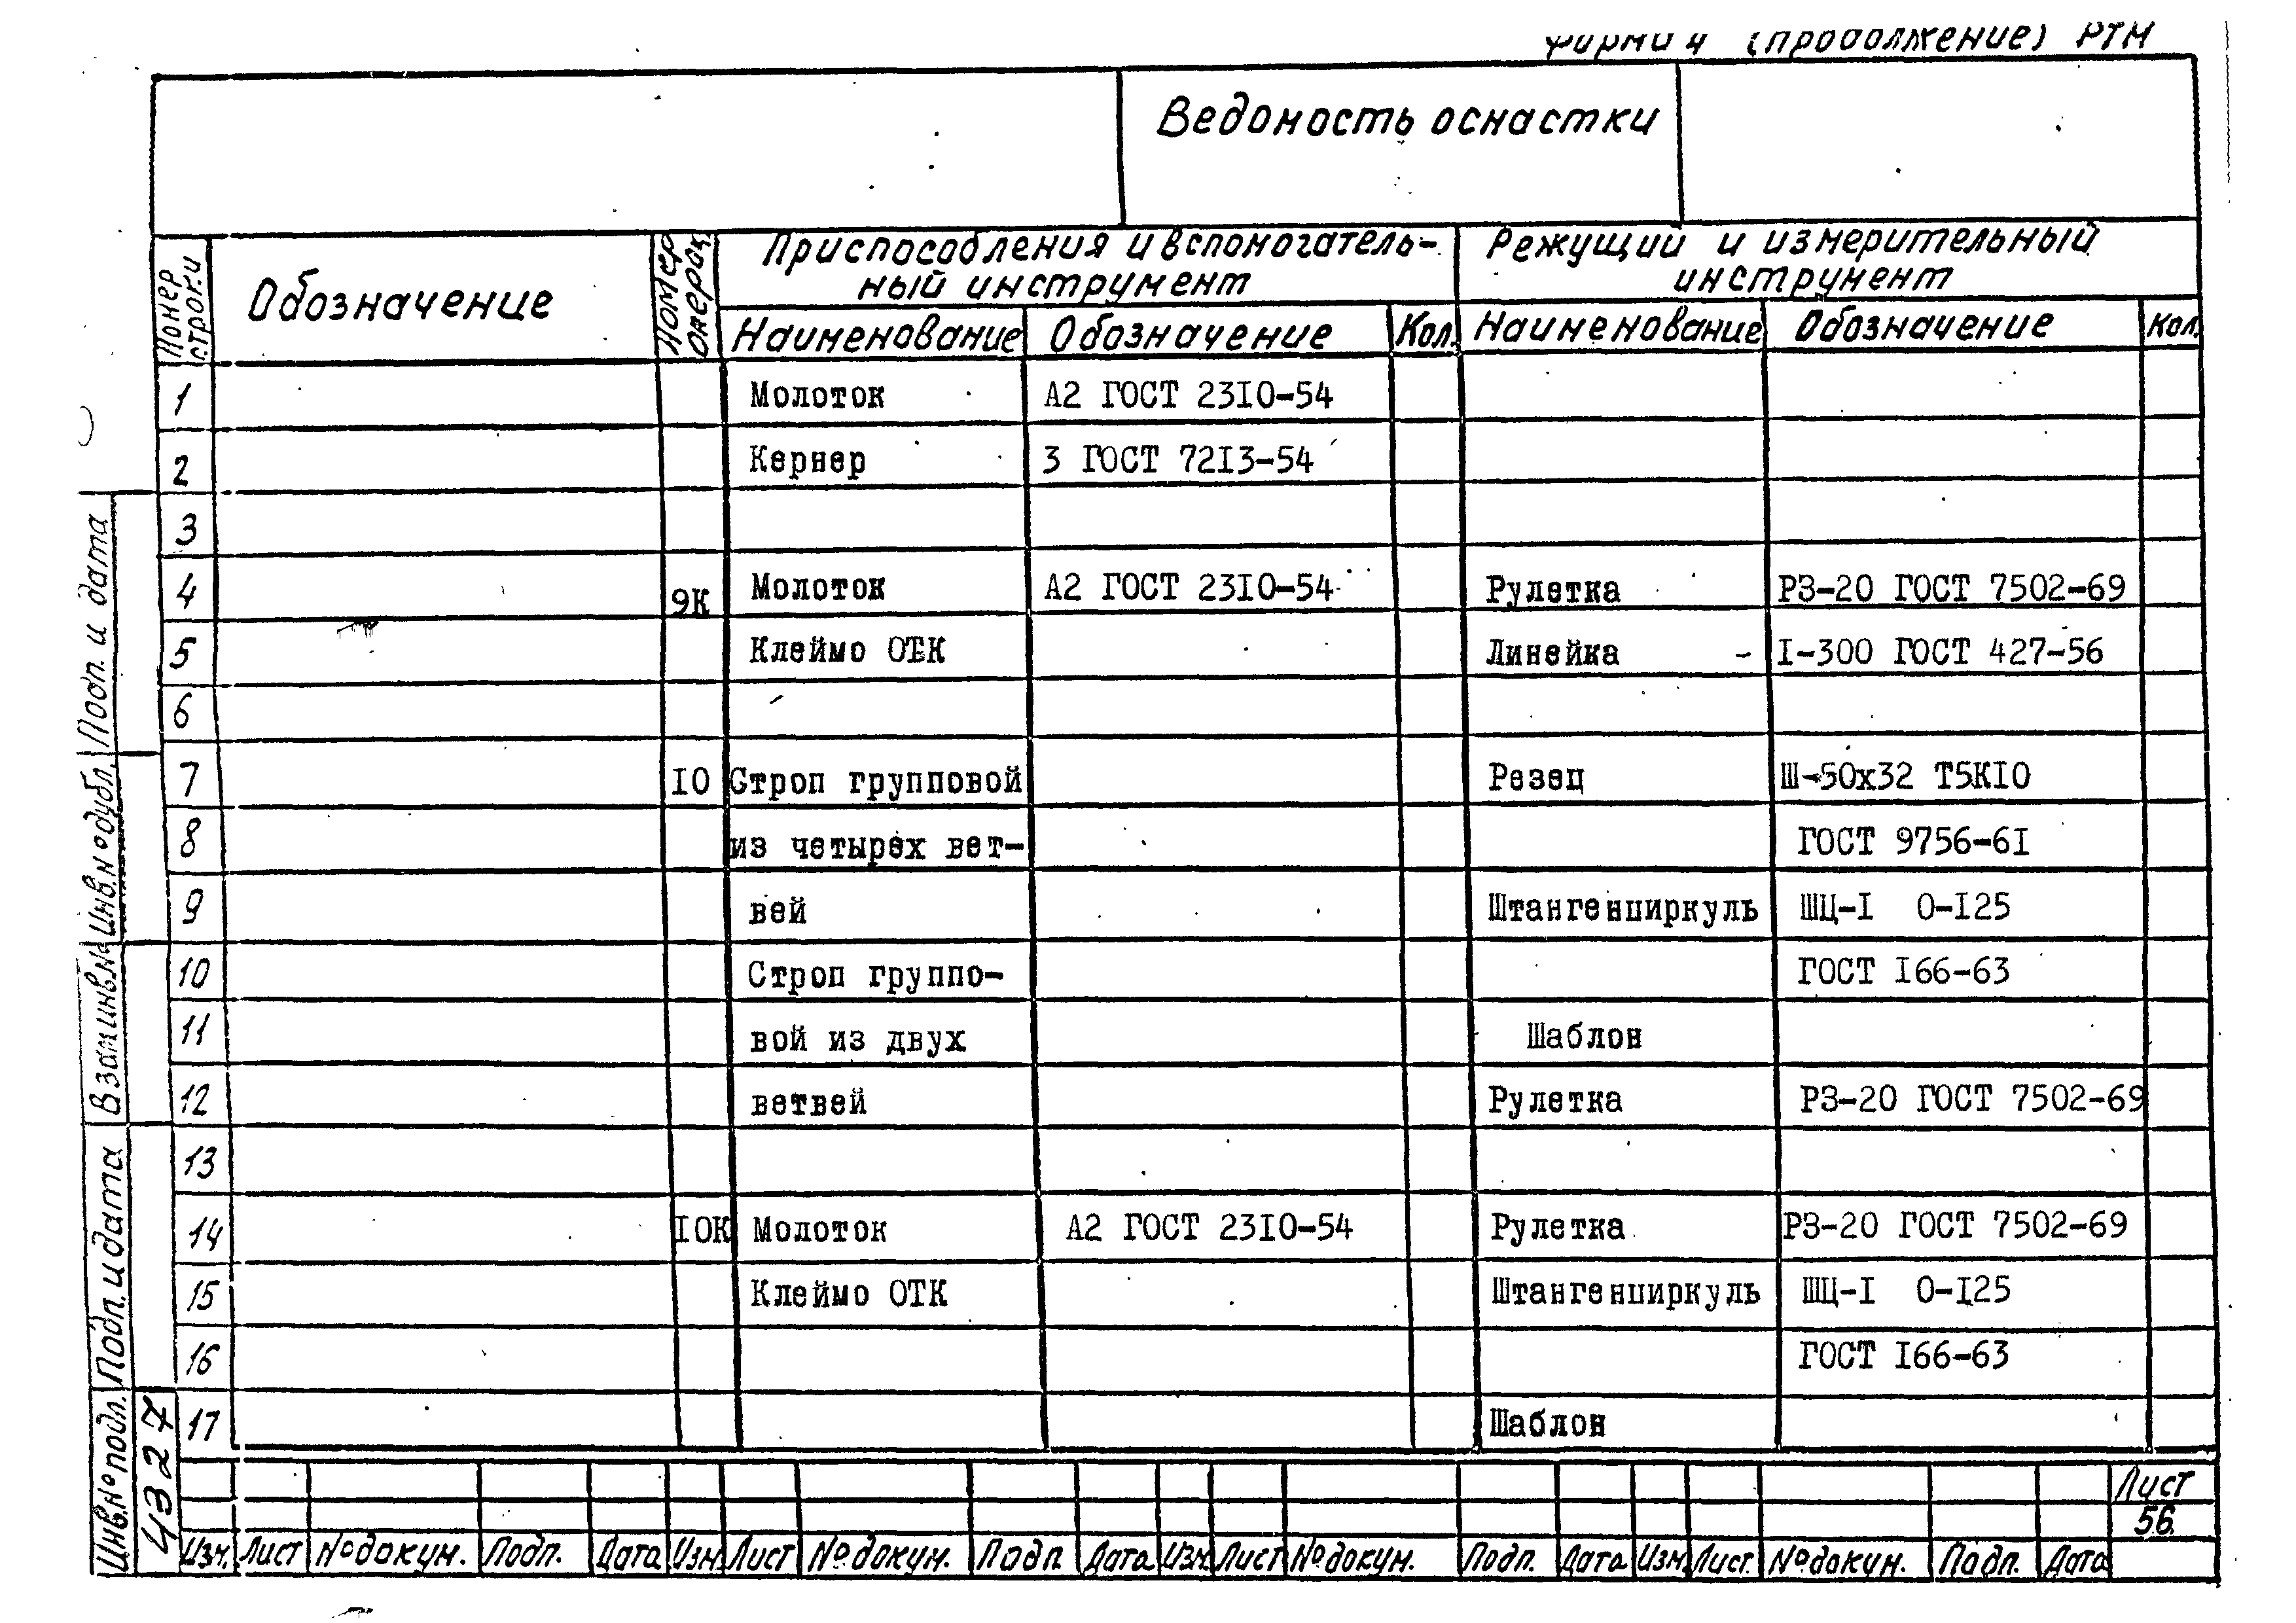 (продолжение) РТМ
Ведомость оснастки
Номер строки
Обозначение
Номер операц.
Приспособления и вспомогатель-
ный инструмент
Режущий и измерительный
инструмент
Наименование Обозначение Кол. Наименование Обозначение Кол.
1 Молоток А2 ГОСТ 2310-54
2 Кернер 3 ГОСТ 7213-54
3
4 9К Молоток А2 ГОСТ 2310-54 Рулетка РЗ-20 ГОСТ 7502-69
5 Клеймо ОТК Линейка - I-300 ГОСТ 427-56
6
7 10 Строп групповой Резец Ш-50х32 Т5К10
8 из четырех вет- ГОСТ 9756-61
9 вей Штангенциркуль ШЦ-I 0-125
10 Строп группо- ГОСТ 166-63
11 вой из двух Шаблон
12 ветвей Рулетка РЗ-20 ГОСТ 7502-69
13
14 10К Молоток А2 ГОСТ 2310-54 Рулетка РЗ-20 ГОСТ 7502-69
15 Клеймо ОТК Штангенциркуль ШЦ-I 0-125
16 ГОСТ 166-63
17 Шаблон
Лист
56
Изм. Лист № докум. Подп. Дата Изм. Лист № докум. Подп. Дата Изм. Лист № докум. Подп. Дата Изм. Лист № докум. Подп. Дата
Подп. и дата
Инв. № дубл.
Взам инв. №
Подп. и дата
Инв. № подл.
4327